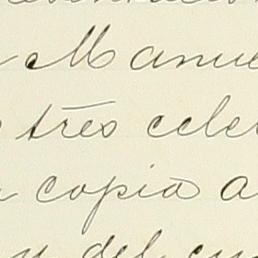 Manue
tres cele
copia a
y del cu